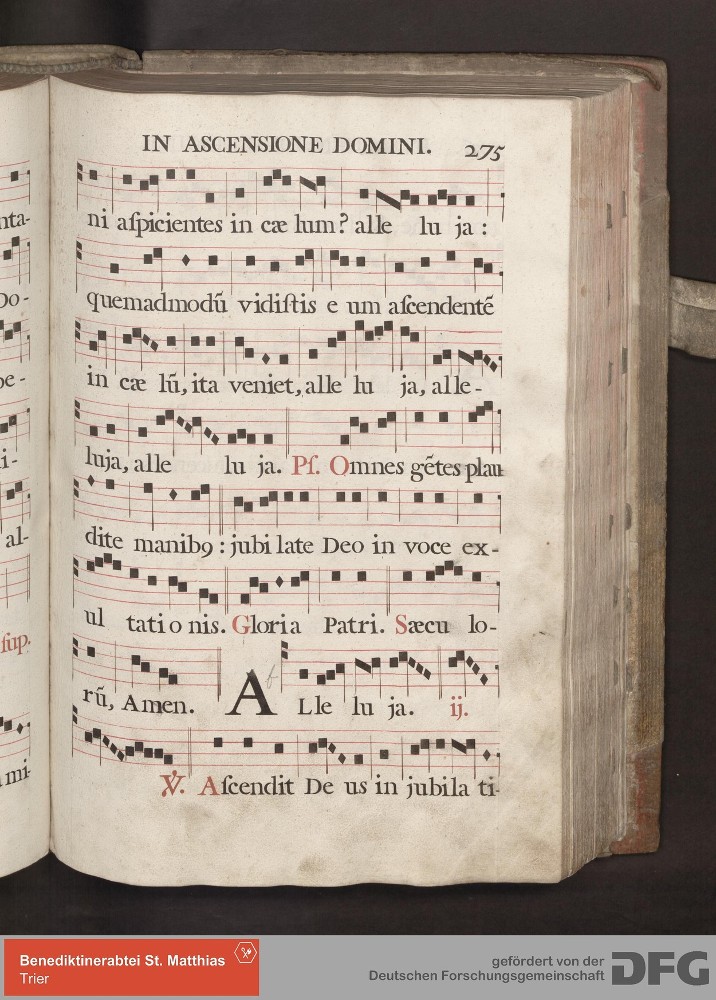 IN ASCENSIONE DOMINI. 275
ni aſpicientes in cæ lum? alle lu ja :
quemadmodū vidiſtis e um aſcendentē
in cæ lū, ita veniet, alle lu ja, alle-
luja, alle lu ja. Pſ. Omnes gētes plau
dite manibꝯ : jubi late Deo in voce ex-
ul tati o nis. Gloria Patri. Sæcu lo-
rū, Amen. A Lle lu ja. ij.
℣. Aſcendit De us in jubila ti-
nta-
Do-
pe-
i-
al-
ſup.
mi-
Benediktinerabtei St. Matthias
Trier
gefördert von der
Deutschen Forschungsgemeinschaft DFG